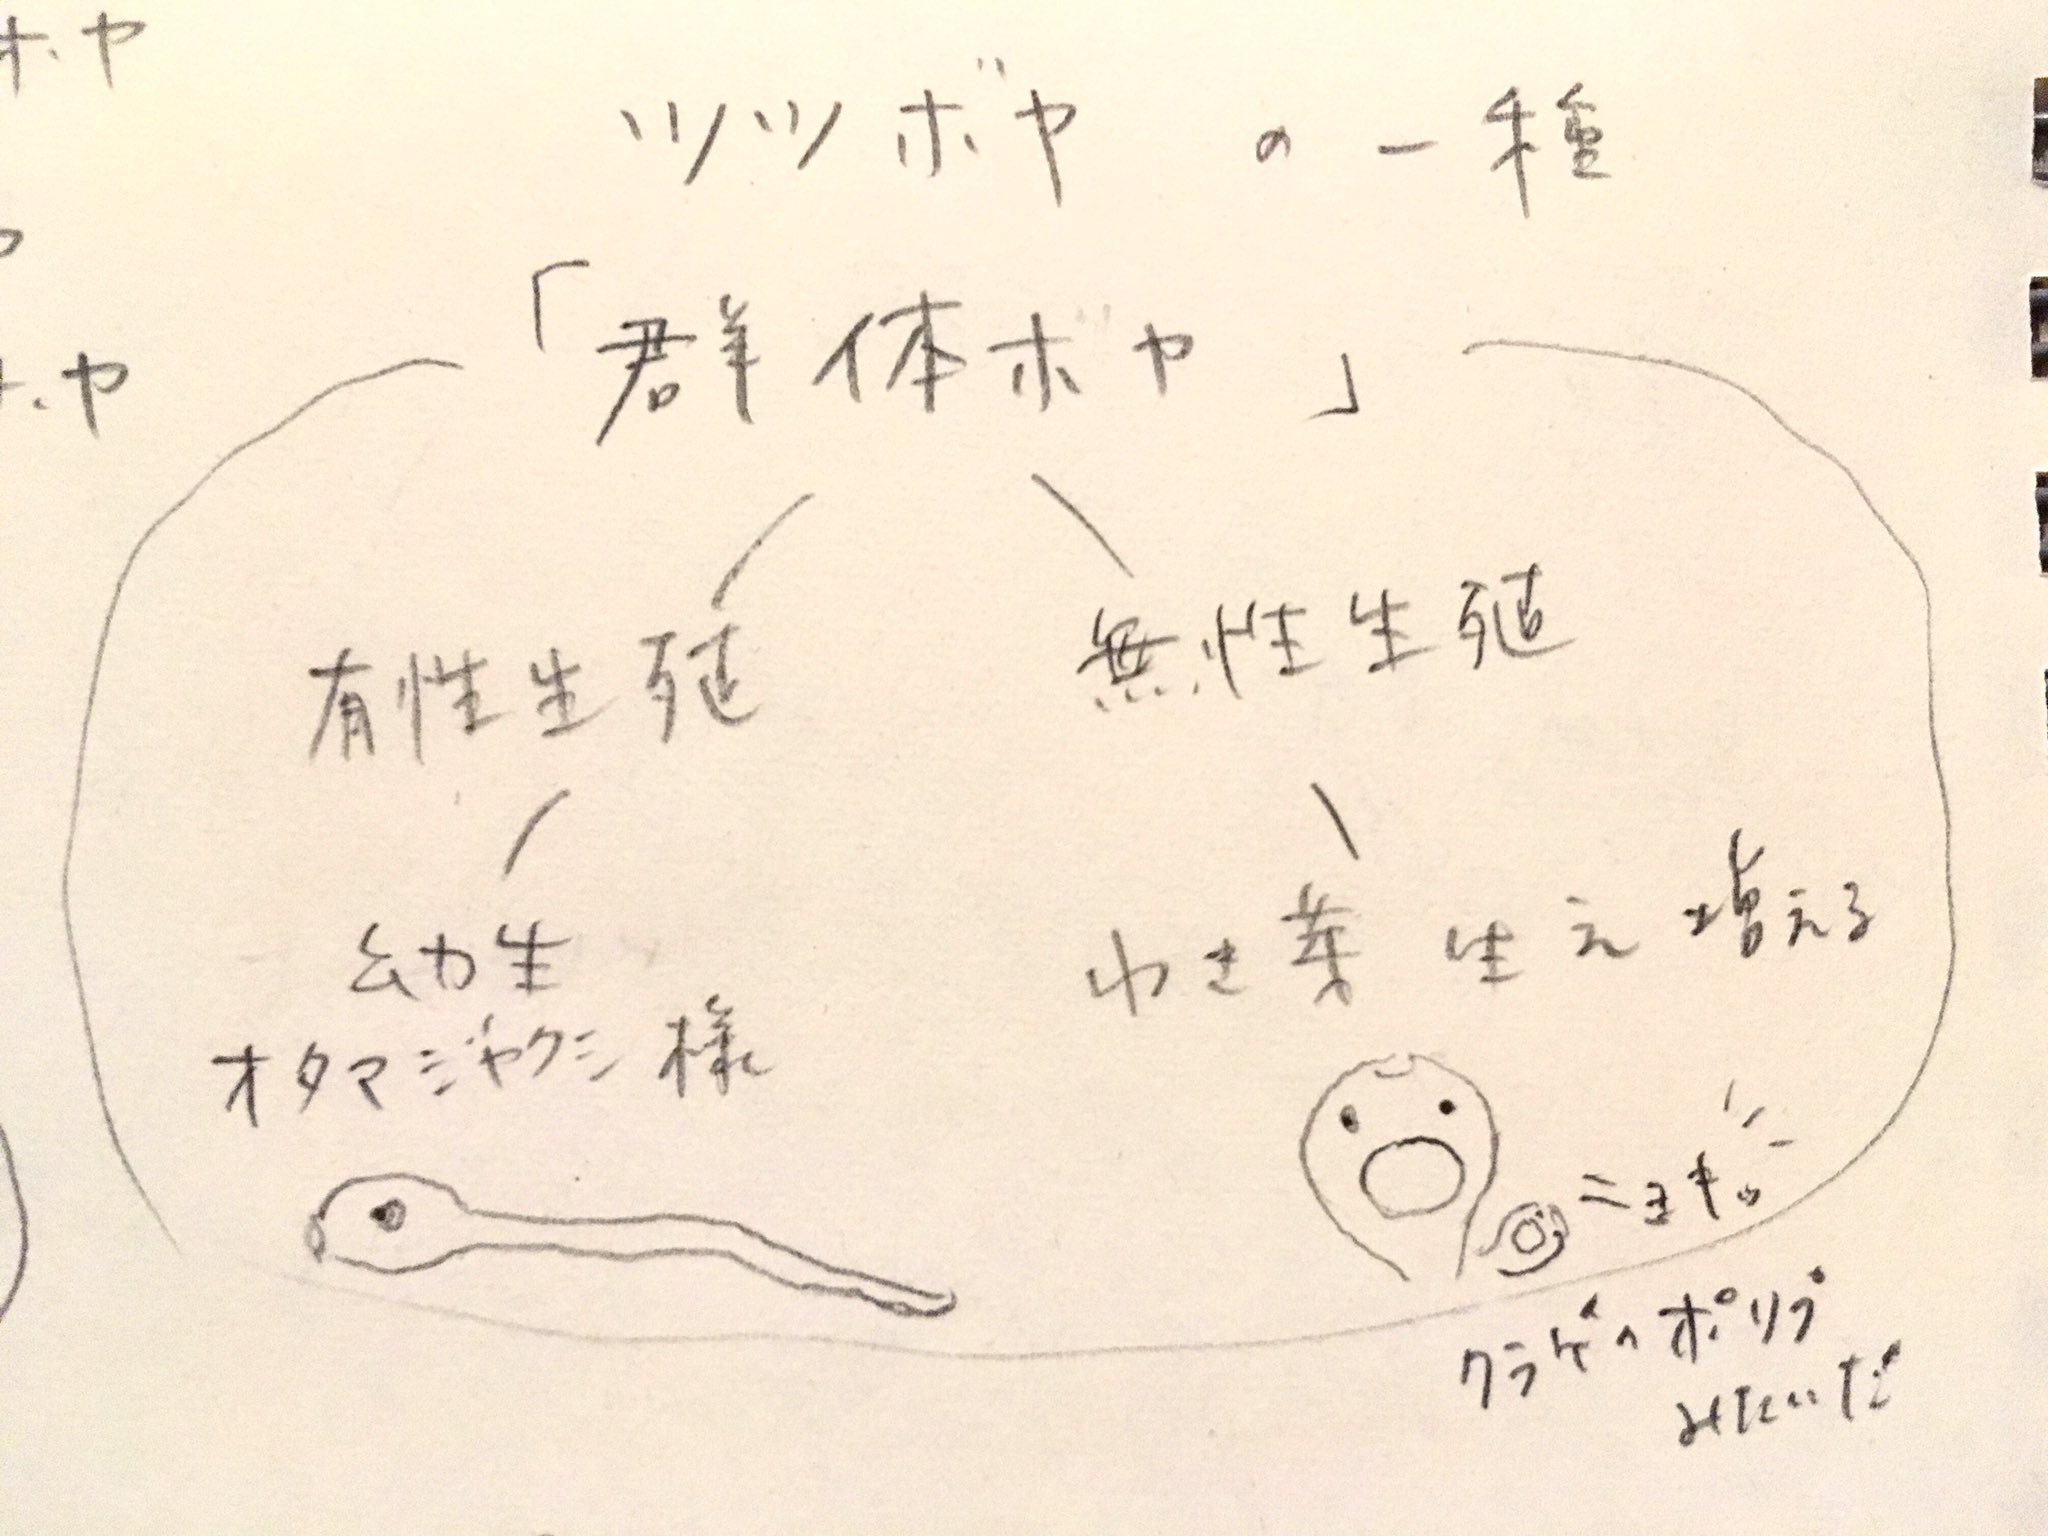 ホヤ
ツツボヤの一種
ホヤ
「群体ボヤ」
有性生殖
無性生殖
幼生
オタマジャクシ様
わき芽生え増える
ニョキ
クラゲのポリプ
みたいだ